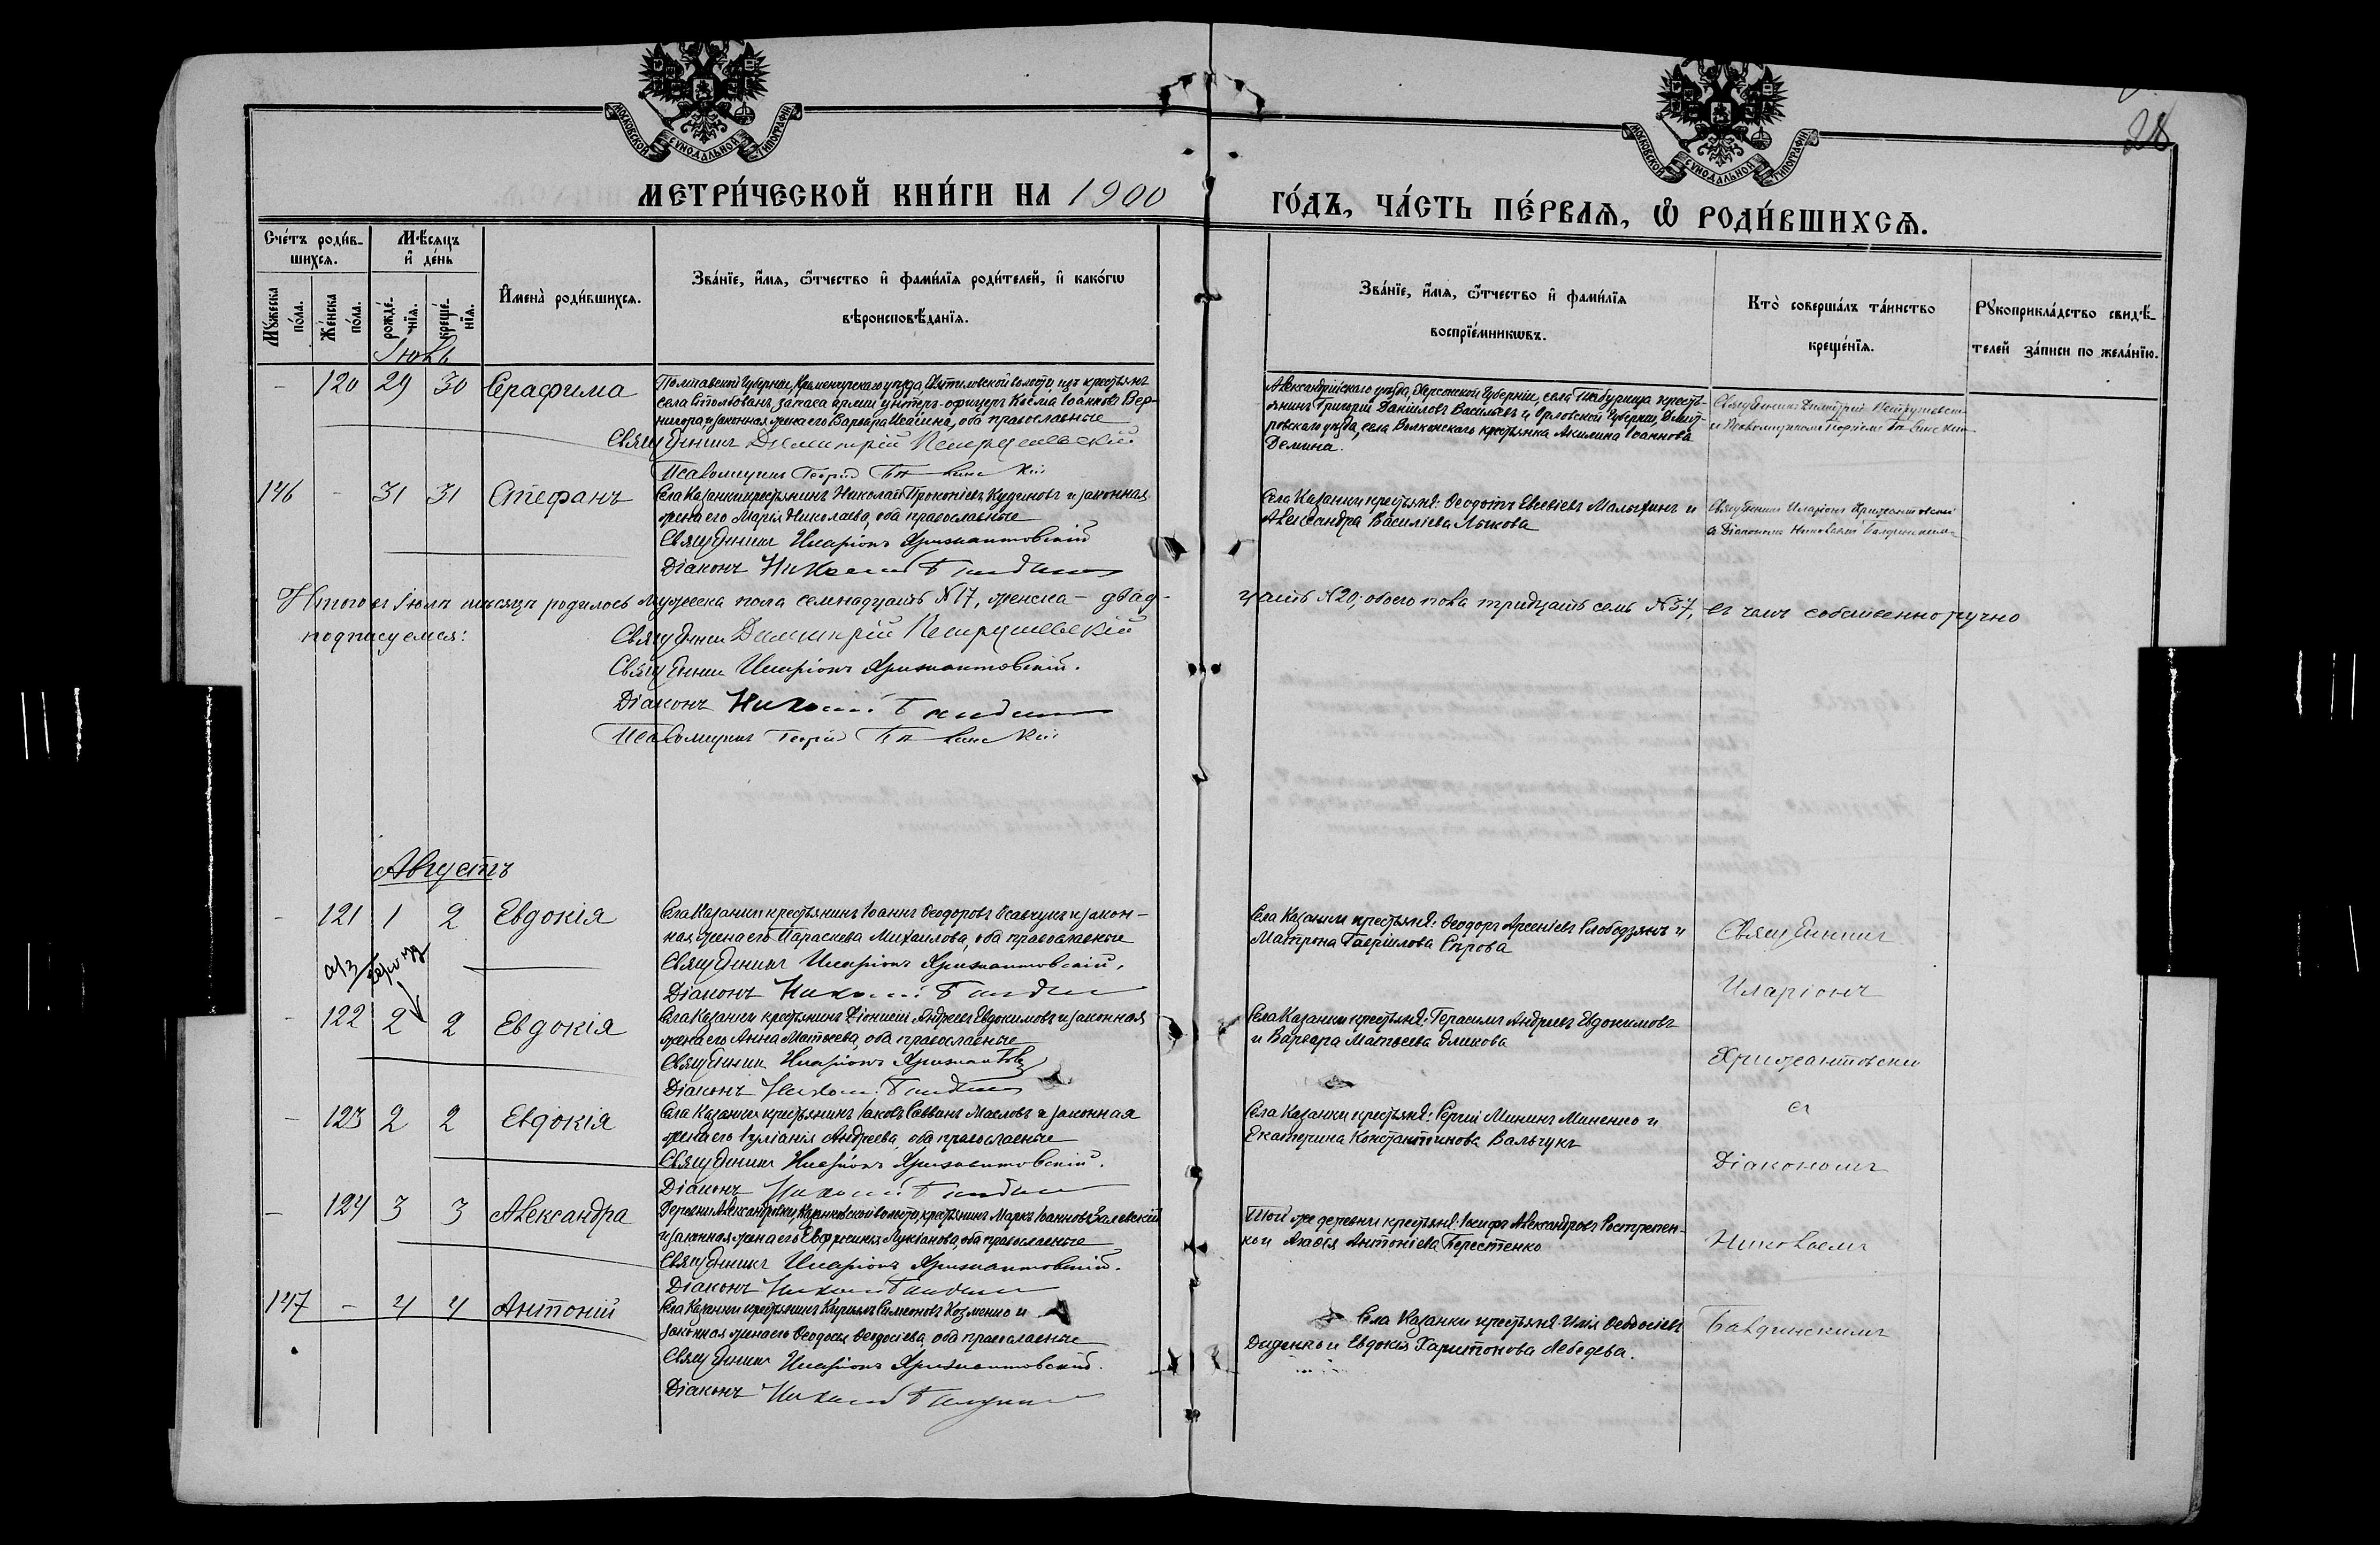 МОСКОВСКОЙ СѴНОДАЛЬНОЙ ТИПОГРАФІИ
МОСКОВСКОЙ СѴНОДАЛЬНОЙ ТИПОГРАФІИ
28
МЕТРИ́ЧЕСКОЙ КНИ́ГИ НА 1900
ГО́ДЪ, ЧА́СТЬ ПЕ́РВАѦ, Ѡ҆ РОДИ́ВШИХСѦ.
Сче́тъ роди́в-
шихся.
Мѣ́сяцъ
и҆ де́нь
Мꙋ́жеска
по́ла.
Же́нска
по́ла.
рожде́-
нїя.
креще́-
нїя.
И҆мена̀ роди́вшихся.
Зва́нїе, и҆́мя, ѻ҆́тчество и҆ фами́лїя роди́телей, и҆ како́гѡ
вѣроисповѣ́данїя.
Зва́нїе, и҆́мя, ѻ҆́тчество и҆ фами́лїя
воспрїе́мникѡвъ.
Кто̀ соверша́лъ та́инство
креще́нїя.
Рꙋкоприкла́дство свидѣ́-
телей за́писи по жела́нїю.
Іюль
- 120 29 30 Серафима
Полтавской Губерніи, Кременчугскаго уѣзда, волости, изъ крестьянъ
села запаса арміи унтеръ-офицеръ Косма Іоанновъ Вер-
нигора, и законная жена его Варвара Исаіина, оба православные
Священникъ Димитрій Петрушевскій
Псаломщикъ Георгій
Александрійскаго уѣзда, Херсонской Губерніи, села Табурища кресть-
янинъ Григорій Даніиловъ Васильевъ и Орловской Губерніи, Дмит-
ровскаго уѣзда, села Волконскаго крестьянка Акилина Іоаннова
Демина.
Священникъ Димитрій Петрушевскій
и Псаломщикомъ Георгіемъ
146 - 31 31 Стефанъ
Села Казанки крестьянинъ Николай Прокопіевъ Кудиновъ и законная
жена его Марія Николаева, оба православные
Священникъ Иларіонъ Хрисантовскій
Діаконъ Николай
Села Казанки крестьяне: Ѳеодотъ Евсевіевъ Малыхинъ и
Александра Василіева Лыкова
Священникъ Иларіонъ
съ Діакономъ Николаемъ
Итого въ Іюлѣ мѣсяцѣ родилось мужеска пола семнадцать N17, женска - двад-
цать N20; обоего пола тридцать семь N37, въ чемъ собственноручно
подписуемся:
Священникъ Димитрій Петрушевскій
Священникъ Иларіонъ Хрисантовскій.
Діаконъ Николай
Псаломщикъ Георгій
Августъ
- 121 1 2 Евдокія
Села Казанки крестьянинъ Іоаннъ Ѳеодоровъ Исавчукъ и закон-
ная жена его Параскева Михаилова, оба православные
Священникъ Иларіонъ Хрисантовскій,
Діаконъ Николай
Села Казанки крестьяне: Ѳеодоръ Арсеніевъ Слободзянъ и
Матрона Гавріилова Сѣрова
Священникъ
Иларіонъ
- 122 2 2 Евдокія
Села Казанки крестьянинъ Діонисій Андреевъ Евдокимовъ и законная
жена его Анна Матѳеева, оба православные
Священникъ Иларіонъ
Діаконъ Николай
Села Казанки крестьяне: Герасимъ Андреевъ Евдокимовъ
и Варвара Матѳеева
- 123 2 2 Евдокія
Села Казанки крестьянинъ Іаковъ Саввинъ Масловъ и законная
жена его Іуліанія Андреева, оба православные
Священникъ Иларіонъ Хрисантовскій.
Діаконъ Николай
Села Казанки крестьяне: Сергій Мининъ Миненко и
Екатерина Константинова Вальчукъ
съ
Діакономъ
- 124 3 3 Александра
Деревни Александровки, Казанковской волости, крестьянинъ Маркъ Іоанновъ Залевскій
и законная жена его Евфросинія Лукіанова, оба православные
Священникъ Иларіонъ Хрисантовскій.
Діаконъ Николай
Той же деревни крестьяне: Іосифъ Александровъ
и Агаѳія Антоніева Берестенко
Николаемъ
147 - 4 4 Антоній
Села Казанки крестьянинъ Кириллъ Симеоновъ Козменко и
законная жена его Ѳеодосія Ѳеодосіева, оба православные
Священникъ Иларіонъ Хрисантовскій.
Діаконъ Николай
Села Казанки крестьяне: Илія Ѳеодосіевъ
Диденко и Евдокія Харитонова Лебедева.